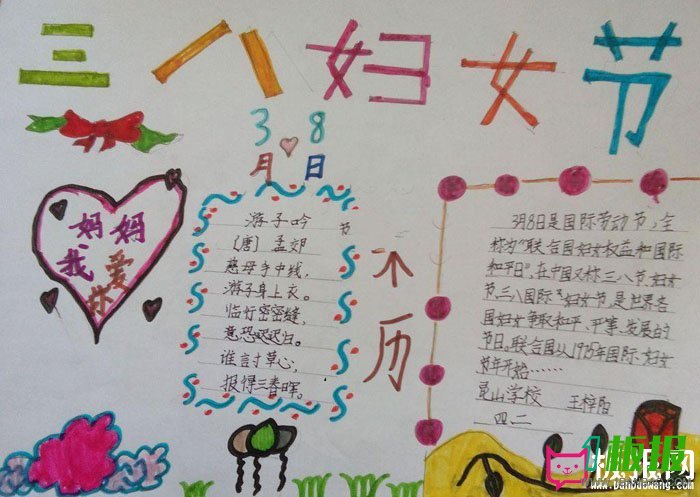 三八妇女节
3 8
月 日
妈妈
我爱
你
游子吟
〔唐〕孟郊
慈母手中线,
游子身上衣。
临行密密缝,
意恐迟迟归。
谁言寸草心,
报得三春晖。
节
不
历
3月8日是国际劳动节,全
称为“联合国妇女权益和国际
和平日”,在中国又称三八节、妇女
节、三八国际妇女节,是世界各
国妇女争取和平、平等、发展的
节日。联合国从1975年国际妇女
节年开始……
昆山学校 王梓阳
四二
板报
www.banbaowang.com